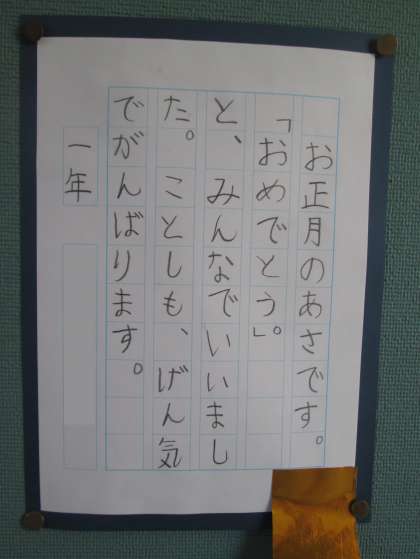 お正月のあさです。
「おめでとう」。
と、みんなでいいまし
た。ことしも、げん気
でがんばります。
一年